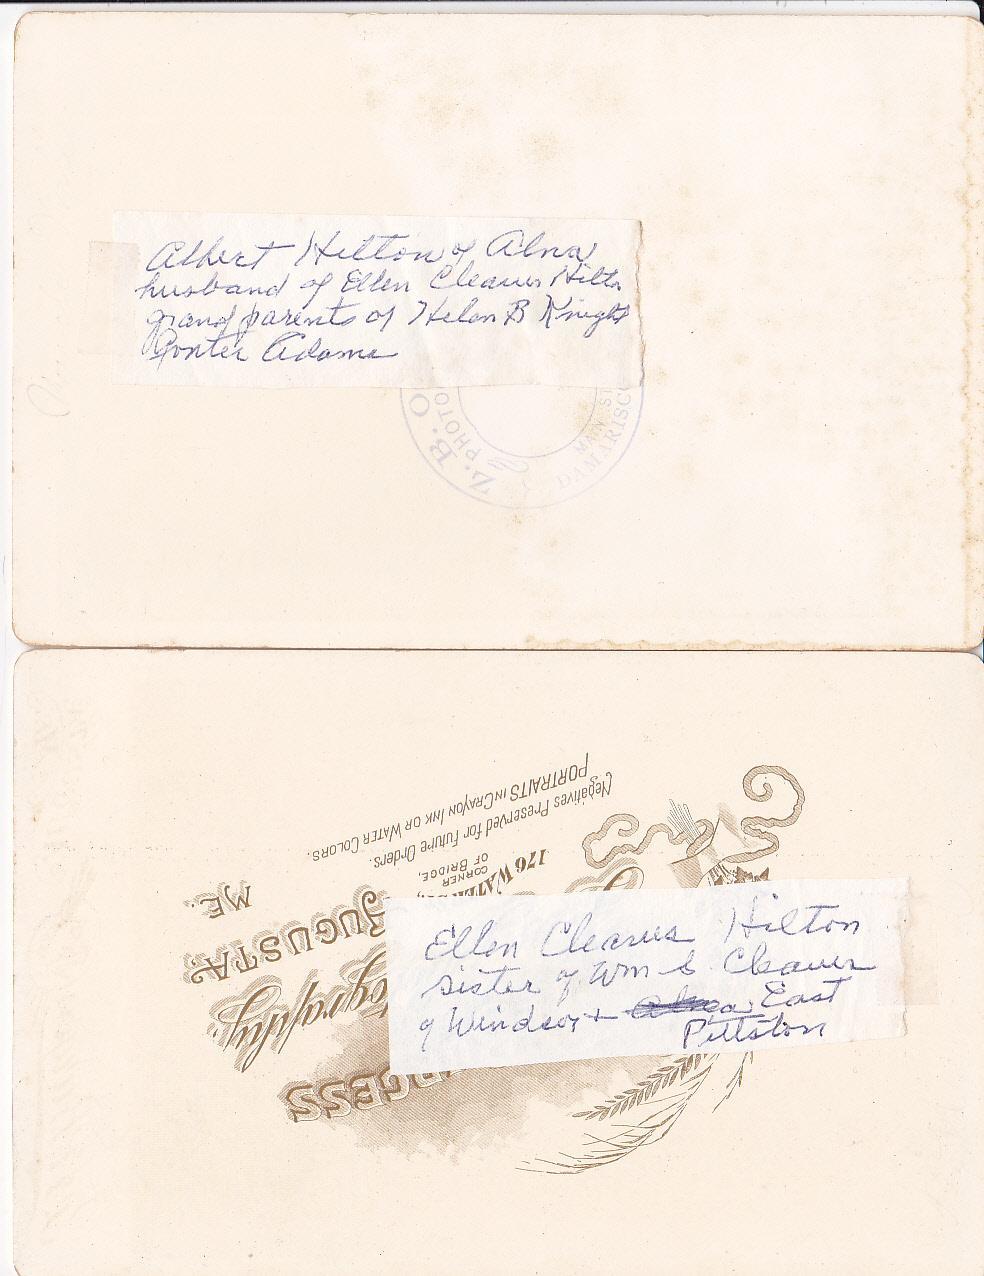 Albert Hilton of Alna
husband of Ellen Cleaves Hilton
grand parents of Helen B Knight
Adams
Z. B. O
PHOTO
MAIN ST
DAMARISC
Negatives Preserved for Future Orders.
PORTRAITS IN CRAYON INK OR WATER COLORS.
176 WATER
CORNER
OF BRIDGE.
AUGUSTA, ME.
ography.
RGESS
Ellen Cleaves Hilton
sister of Wm C Cleaves
of Windsor + East
Pittston